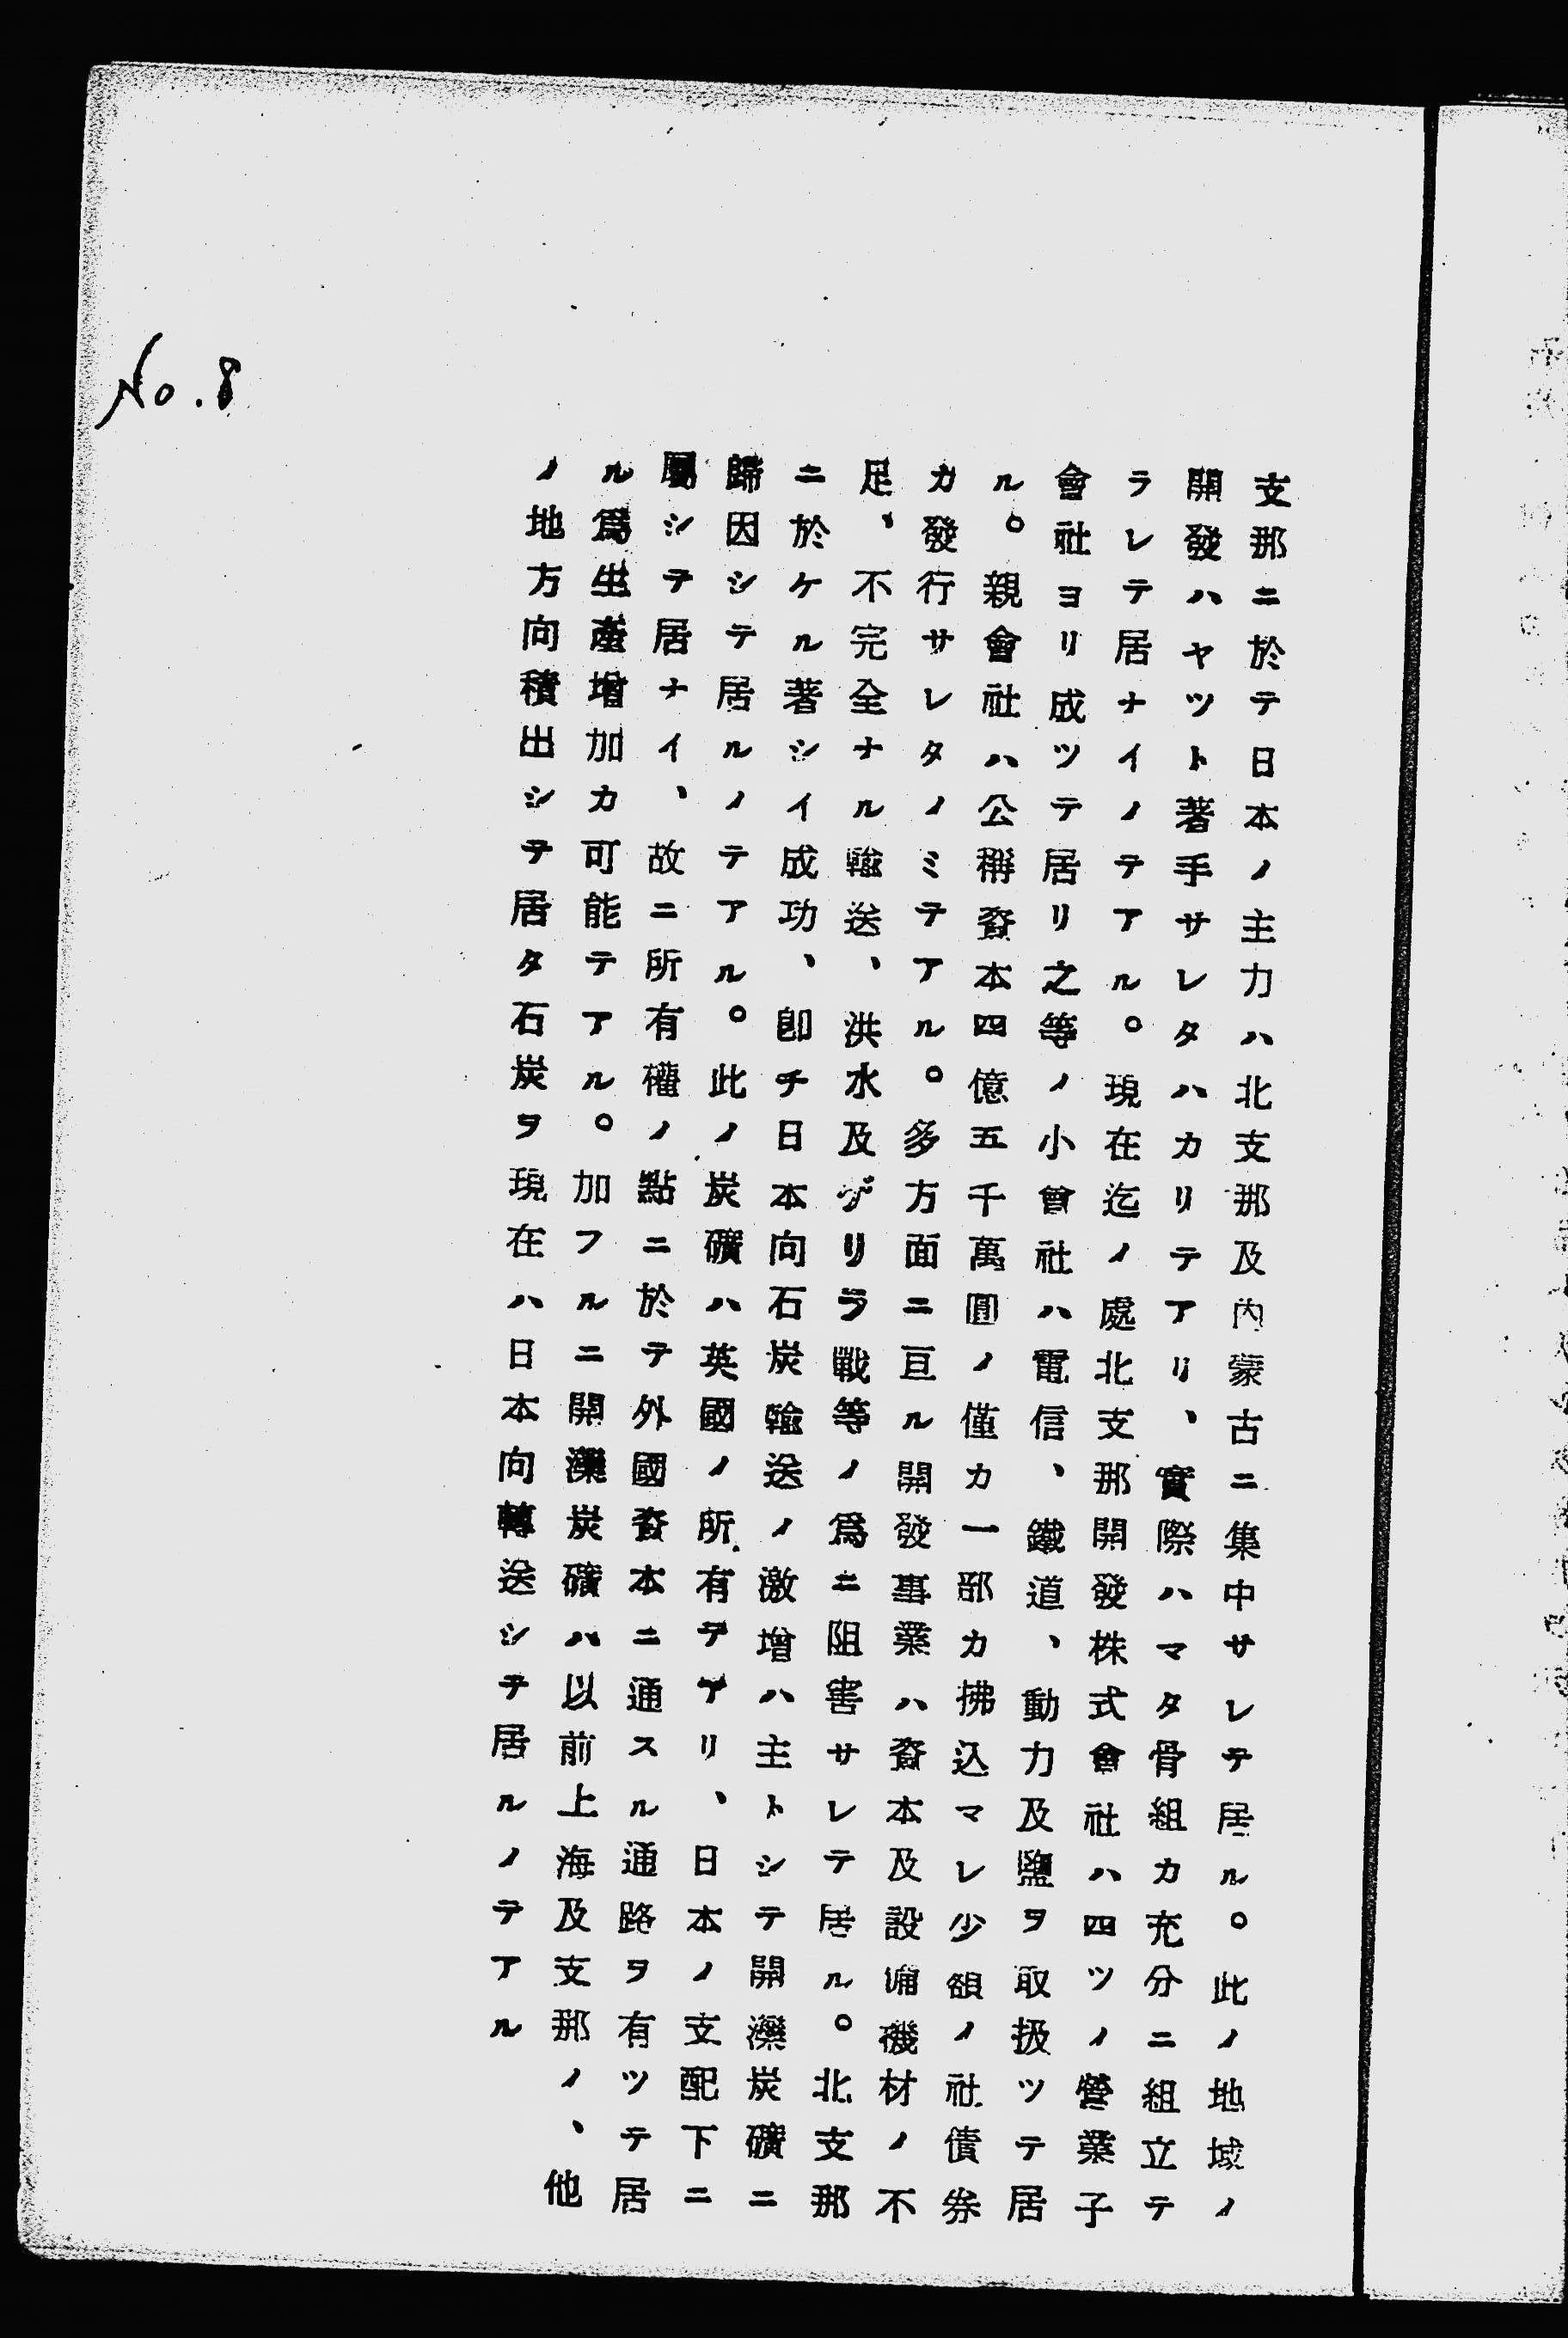 支那ニ於テ日本ノ主力ハ北支那及內蒙古ニ集中サレテ居ル。此ノ地域ノ
開發ハヤツト著手サレタハカリテアリ、實際ハマタ骨組カ充分ニ組立テ
ラレテ居ナイノテアル。現在迄ノ處北支那開發株式會社ハ四ツノ營業子
會社ヨリ成ツテ居リ之等ノ小會社ハ電信、鐵道、動力及鹽ヲ取扱ツテ居
ル。親會社ハ公稱資本四億五千萬圓ノ僅カ一部カ拂込マレ少額ノ社債券
カ發行サレタノミテアル。多方面ニ亘ル開發事業ハ資本及設備機材ノ不
足、不完全ナル輸送、洪水及ゲリラ戰等ノ爲ニ阻害サレテ居ル。北支那
ニ於ケル著シイ成功、卽チ日本向石炭輸送ノ激增ハ主トシテ開灤炭礦ニ
歸因シテ居ルノテアル。此ノ炭礦ハ英國ノ所有デアリ、日本ノ支配下ニ
屬シテ居ナイ、故ニ所有權ノ點ニ於テ外國資本ニ通スル通路ヲ有ツテ居
ル爲生產增加カ可能テアル。加フルニ開灤炭礦ハ以前上海及支那ノ、他
ノ地方向積出シヲ居タ石炭ヲ現在ハ日本向轉送シテ居ルノテアル
No.8